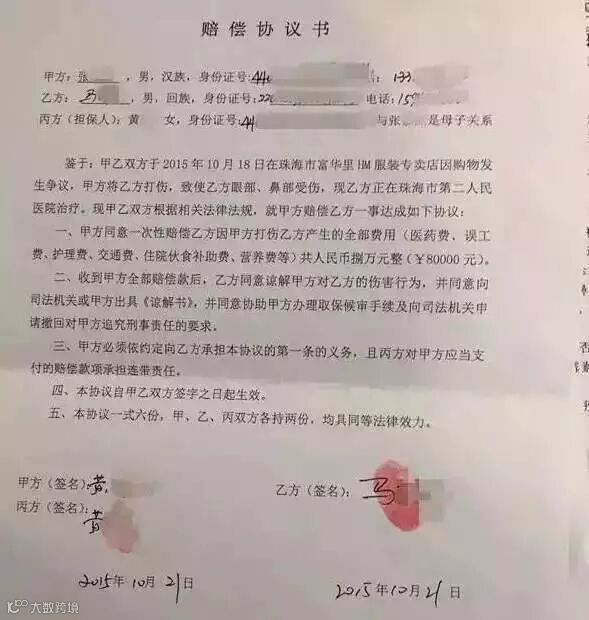 赔偿协议书
甲方：张 ，男，汉族，身份证号：440 ：133
乙方：马 ，男，回族，身份证号：220 电话：159
丙方（担保人）：黄 女，身份证号：44 与张 是母子关系
鉴于：甲乙双方于2015年10月18日在珠海市富华里HM服装专卖店因购物发
生争议，甲方将乙方打伤，致使乙方眼部、鼻部受伤，现乙方正在珠海市第二人民
医院治疗。现甲乙双方根据相关法律法规，就甲方赔偿乙方一事达成如下协议：
一、甲方同意一次性赔偿乙方因甲方打伤乙方产生的全部费用（医药费、误工
费、护理费、交通费、住院伙食补助费、营养费等）共人民币捌万元整（￥80000元）。
二、收到甲方全部赔偿款后，乙方同意谅解甲方对乙方的伤害行为，并同意向
司法机关或甲方出具《谅解书》，并同意协助甲方办理取保候审手续及向司法机关申
请撤回对甲方追究刑事责任的要求。
三、甲方必须依约定向乙方承担本协议的第一条的义务，且丙方对甲方应当支
付的赔偿款项承担连带责任。
四、本协议自甲乙双方签字之日起生效。
五、本协议一式六份，甲、乙、丙双方各持两份，均具同等法律效力。
甲方（签名）：黄 乙方（签名）：马
丙方（签名）：黄
2015年10月21日 2015年10月21日
大数跨境